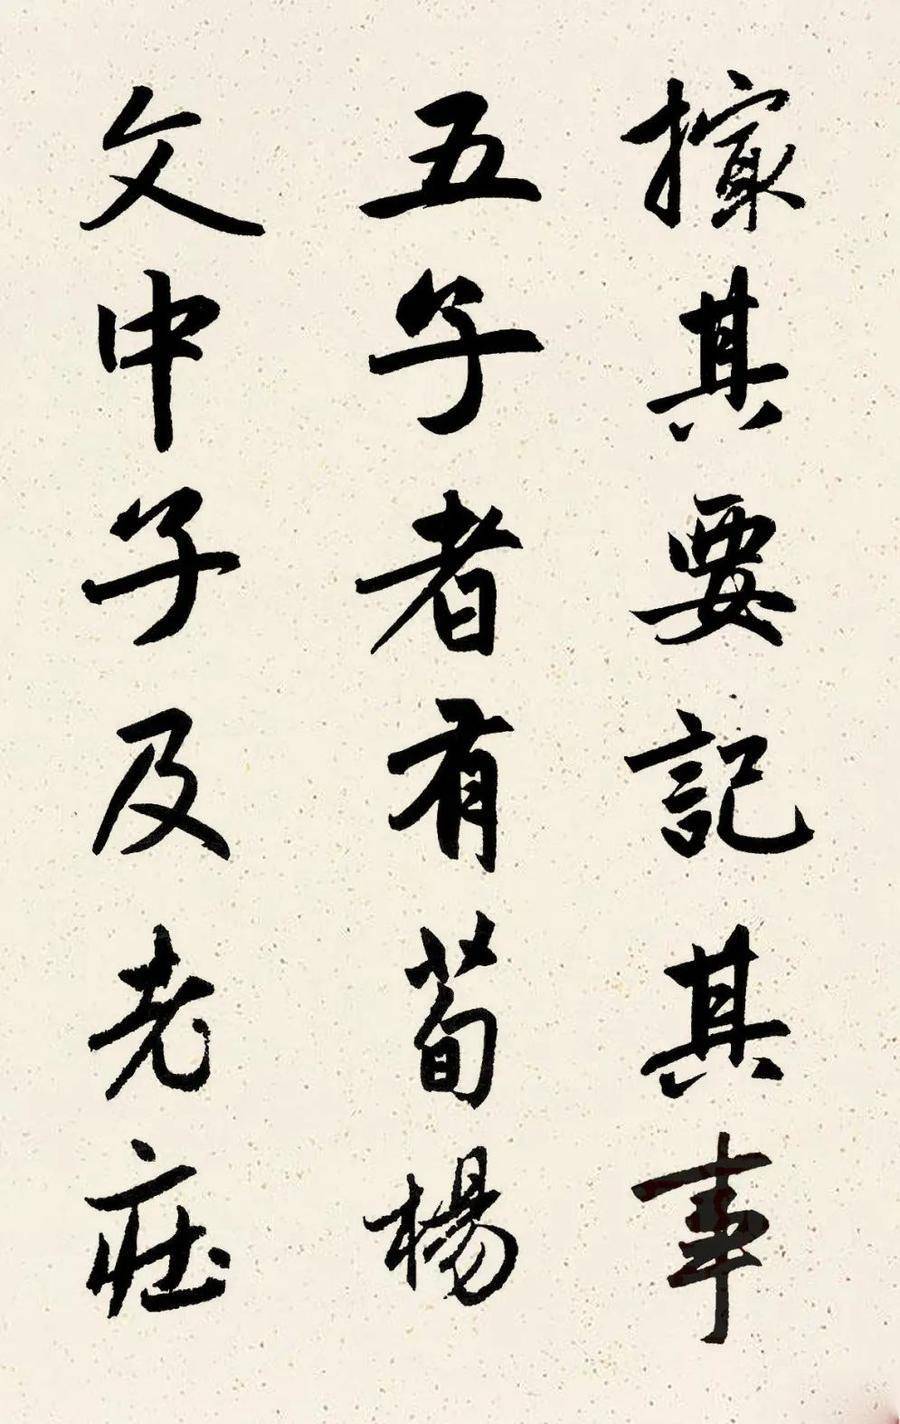 撮其要記其事
五子者有荀楊
文中子及老莊